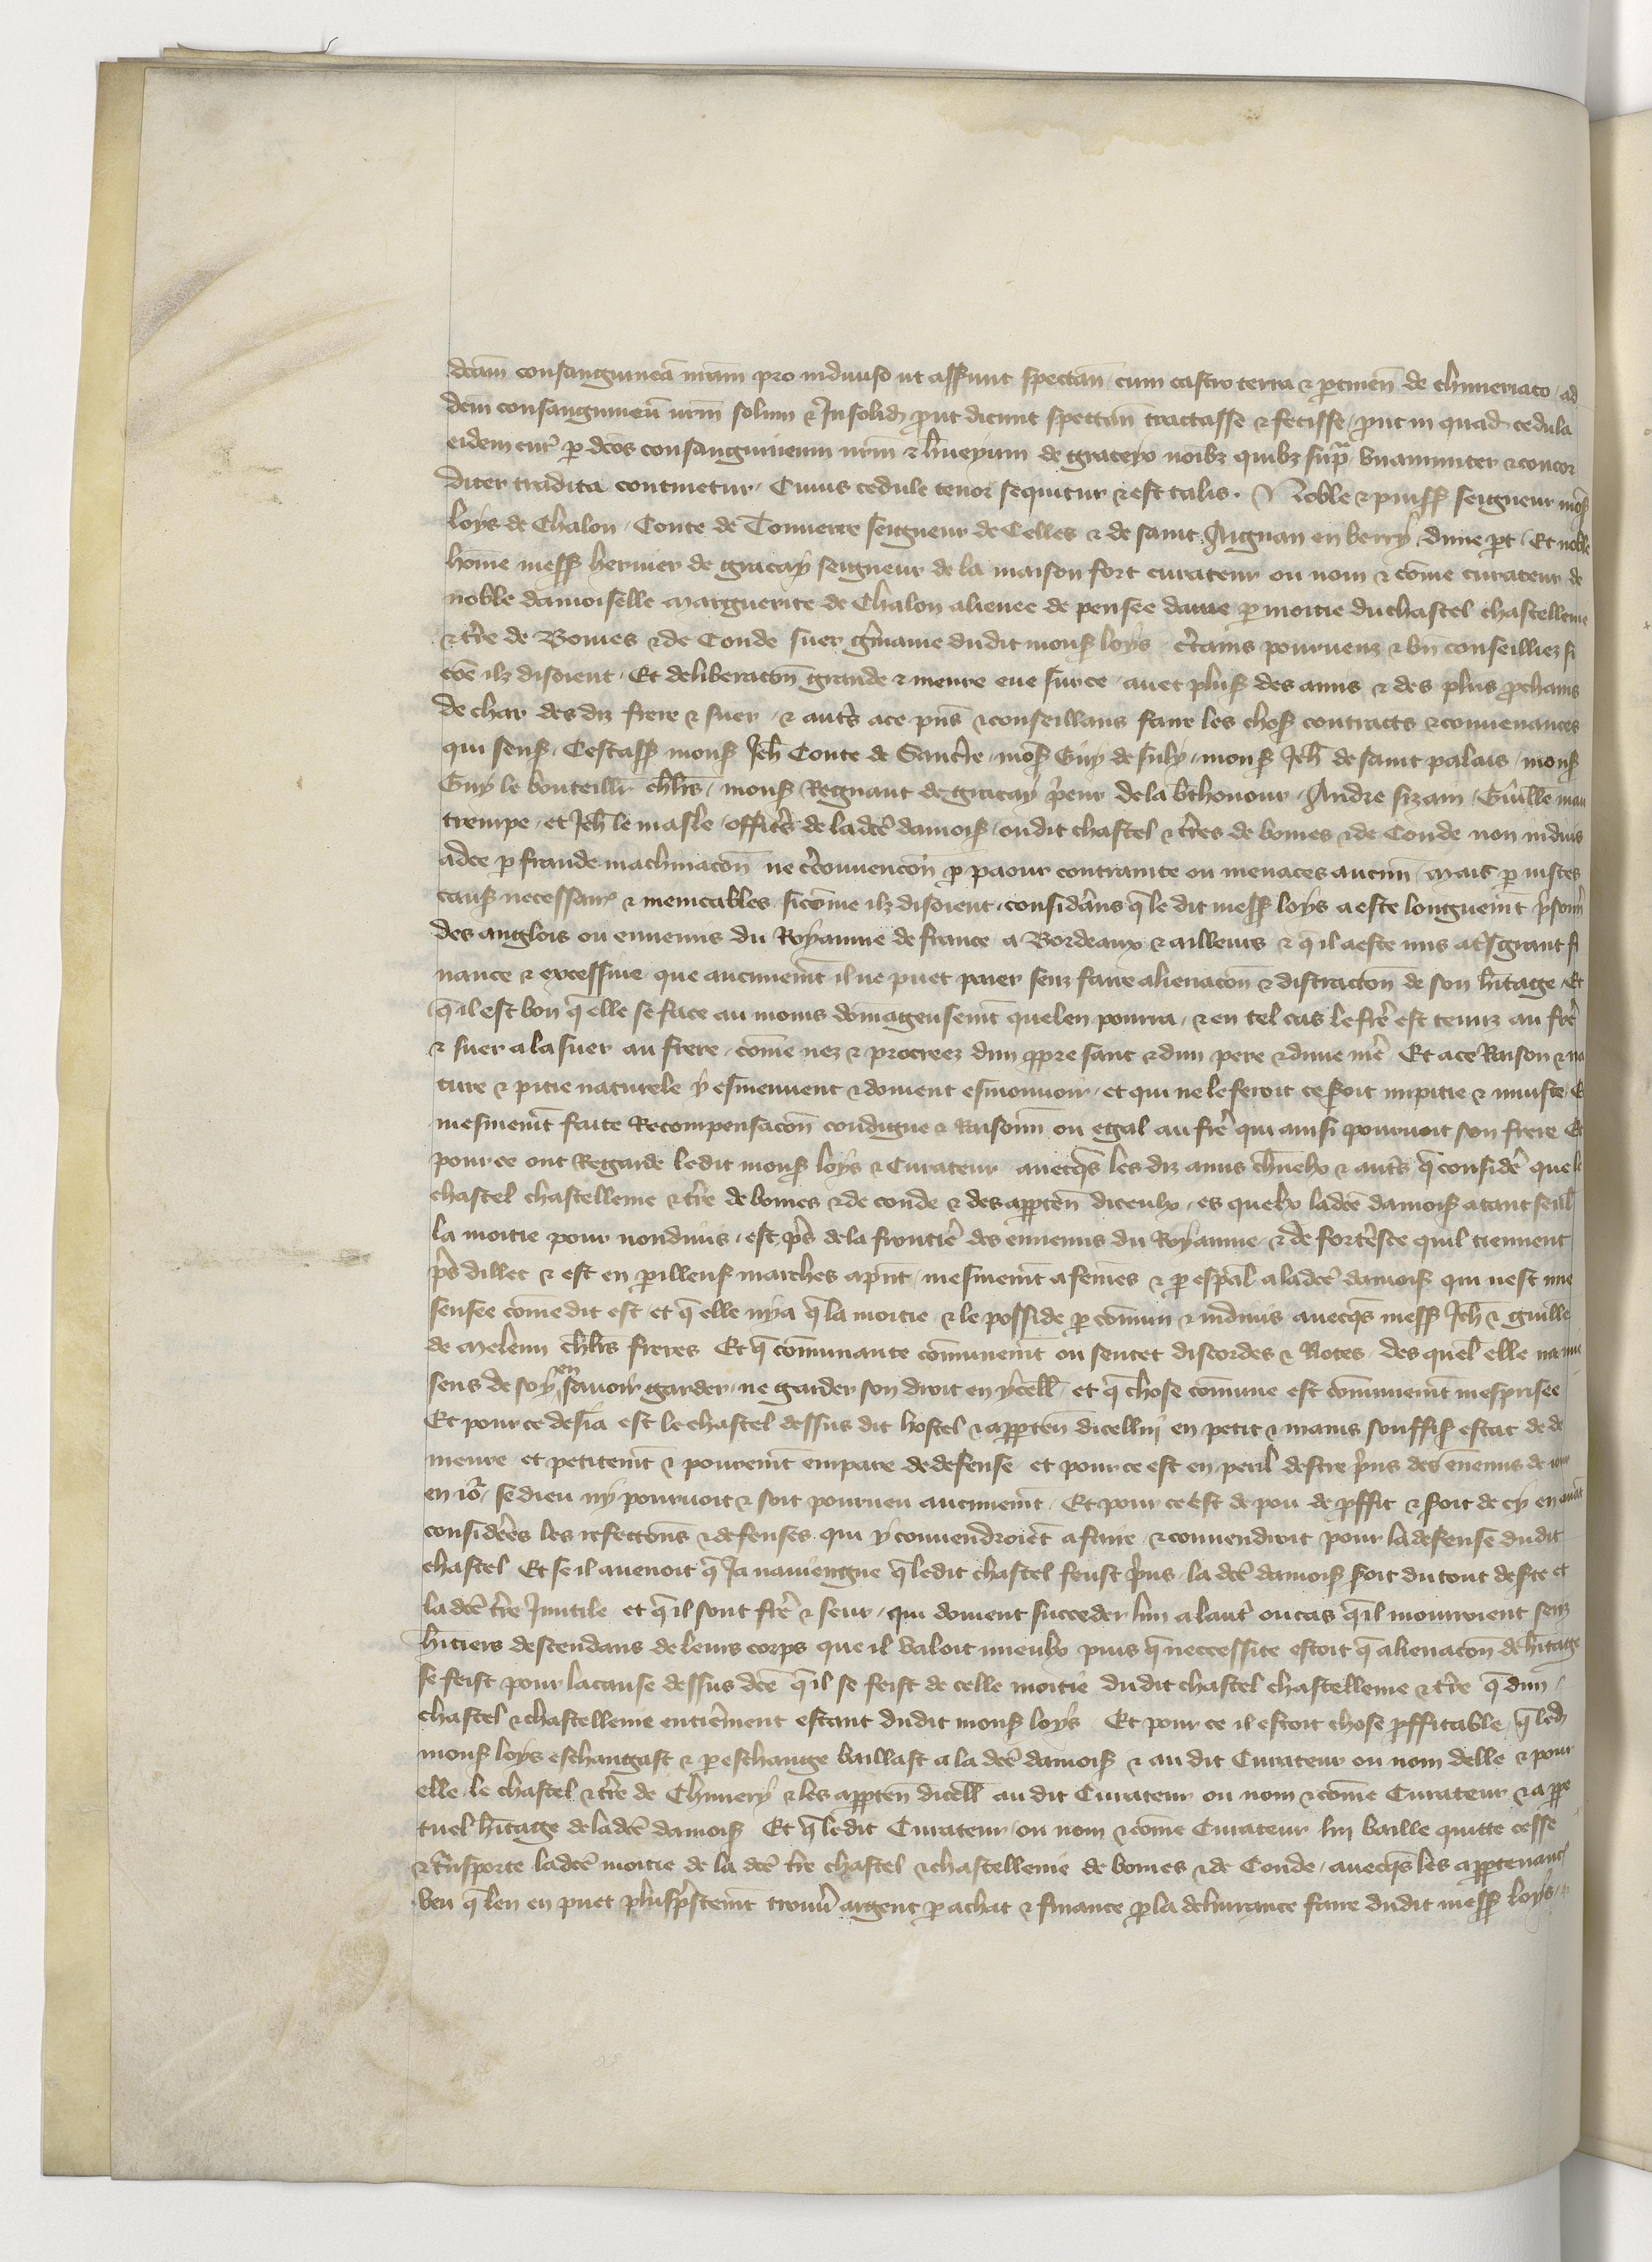 dcam consanguineā nrām pro indiuiso ut asserunt spectan cum castro terra & ptinen de chimeriaco ad
dcm consanguineū nrm solum & Insolid prout dicunt spectan tractasse & fecisse prout in quad cedula
eidem cur p dcos consanguineum nrm & hueyum de graceyo noibz quibz supra vnanimiter & concor
diter tradita continetur Cuius cedule tenor sequitur & est talis. Noble & puiss seigneur mos
loys de Chalon Conte de Tonnerre seigneur de Celles & de saint Aignan en berry dune pt Et noble
home mess hernier de gracay seigneur de la maison fort curateur ou nom & come curateur de
noble damoiselle marguerite de Chalon alienee de pensee dame p moitie du chastel chastellenie
& tre de Bomes & de Conde suer gmaine dudit mons loys ctains pourueuz & bn conseilliez si
coe ilz disoient Et deliberacon grande & meure eue surce auec plus des amis & des plus pchains
de char des diz frere & suer & auts ace pns & conseillans faire les chos contracts & conuenances
qui sens Cestass mons Jeh Conte de Sancre mos Guy de suly mons Jeh de saint palais mons
Guy le bouteillr chlrs mons Regnaut de gracay peur dela vthonour Andre sizain Guille mau
trempe et Jeh le masle offics de ladce damois oudit chastel & tres de bomes & de Conde non induis
adce p fraude machinacon ne circonuencon p paour contrainte ou menaces aucun mais p iustes
caus necessair & meuitables sicome ilz disoient considans q le dit mess loys a este longuemt pson
des anglois ou ennemis du Royaume de france a Bordeaux & ailleurs & q il aeste mis a tsgrant fi
nance & excessiue que aucunemt il ne puet paier senz faire alienacon & distraccon de son hitage Et
q il est bon q elle se face au moins domageusemt quelen pourra & en tel cas le fre est tenuz au fre
& suer ala suer au frere come nez & procreez dun ppre sanc & dun pere & dune me Et ace Raison & na
ture & pitie naturele y esmeuuent & doiuent esmouuoir et qui ne le feroit ce seroit impitie & iniuste Et
mesmemt faite Recompensacon condigne & Raisonn ou egal au fre qui ainsi pouruoit son frere Et
pource ont Regarde ledit mons loys & Curateur auecqs les diz amis chneulx & auts q considé que le
chastel chastellenie & tre de bomes & de conde & des apptēn diceulx es quelx ladce damois atant seul
la moitie pour nondiuis est ps dela frontie des ennemis du Royaume & de fortesce quil tiennent
ps dillec & est en pilleus marches apnt mesmemt a femes & p espal a ladce damois qui nest mie
sensee come dit est et q elle nya q la moitie & le posside p comun & indiuis auecqs mess Jeh & guille
de meleun chlrs freres Et q communaute comunemt on sentet discordes & Rotes des quel elle na mie
sens de soy en sauoir garder ne garder son droit en ycell et q chose comune est comunemt mesprisee
Et pource desia est le chastel dessus dit hostel & apptēn dicellui en petit & mains souffis estat de de
meure et petitemt & pouremt empare dedefense et pource est en peril destre pris des enemis de iour
en ior se dieu ny pouruoit & soit pourueu aucunemt Et pour ce est de pou de pffit & soit de cy en auāt
considéres les refeccons & defenses qui y conuendroiēt afaire & conuendroit pour ladefense dudit
chastel Et se il auenoit q Ja nauiengne q ledit chastel feust pris la dce damois soit dutout deste et
ladce tre Inutile et q il sont fre & seur qui doiuent succeder lun a lautr oucas q il mourroient senz
hitiers descendans de leurs corps que il valoit mieulx puis q neccessite estoit q alienacon de hitage
se feist pour lacause dessus dce q il se feist de celle moitie dudit chastel chastellenie & tre q dun
chastel & chastellenie entierment estant dudit mons loys Et pour ce il estoit chose pffitable q led
mons loys eschangast & p eschange baillast a la dce damois & au dit Curateur ou nom delle & pour
elle le chastel & tre de Chimery & les apptēn dicell au dit Curateur ou nom & come Curateur & appe
tuel hitage deladce damois Et q ledit Curateur ou nom & come Curateur luy baille quitte cesse
& tnsporte ladce moitie de la dce tre chastel & chastellenie de bomes & de Conde auecqs les apptenanc
veu q len en puet plusprestemt trouu argent p achat & finance p la deliurance faire dudit mess loys